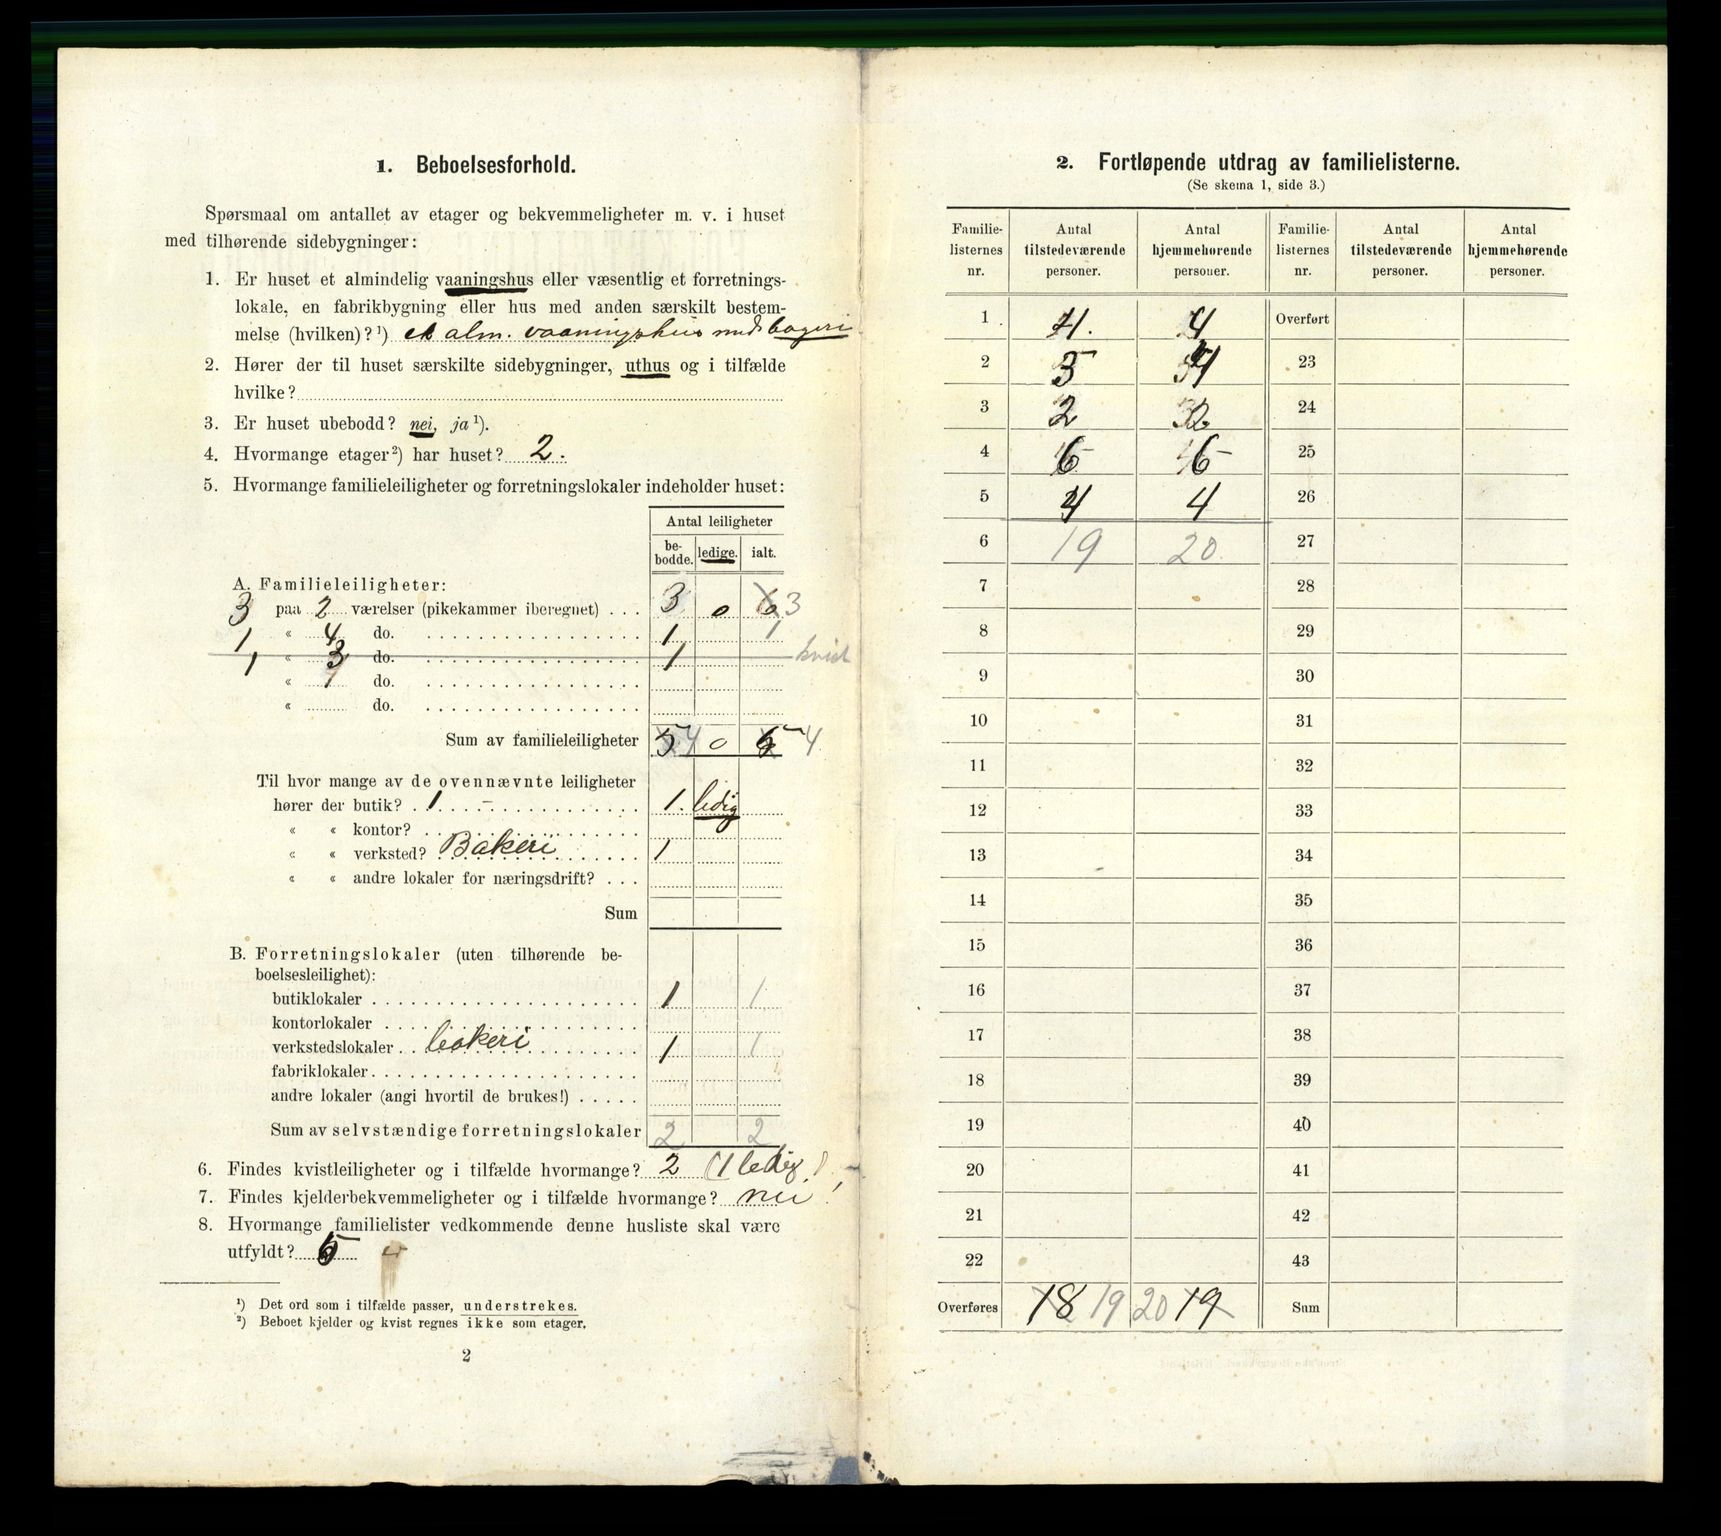 1. Beboelsesforhold.
Spørsmaal om antallet av etager og bekvemmeligheter m. v. i huset
med tilhørende sidebygninger:
1. Er huset et almindelig vaaningshus eller væsentlig et forretnings-
lokale, en fabrikbygning eller hus med anden særskilt bestem-
melse (hvilken)?¹) et alm. vaaningshus med bageri
2. Hører der til huset særskilte sidebygninger, uthus og i tilfælde
hvilke?
3. Er huset ubebodd? nei, ja¹).
4. Hvormange etager²) har huset? 2.
5. Hvormange familieleiligheter og forretningslokaler indeholder huset:
Antal leiligheter
be-bodde. ledige. ialt.
A. Familieleiligheter:
3 paa 2 værelser (pikekammer iberegnet) . . . 3 0 6 3
1 « 4 do. 1 1
1 « 3 do. 1 kvist
« 1 do.
« do.
Sum av familieleiligheter 5 4 0 5 4
Til hvor mange av de ovennævnte leiligheter
hører der butik? . 1 . - 1. ledig
« « kontor?
« « verksted? Bakeri 1
« « andre lokaler for næringsdrift? . . .
Sum
B. Forretningslokaler (uten tilhørende be-
boelsesleilighet):
butiklokaler 1 1
kontorlokaler
verkstedslokaler . . bakeri 1 1
fabriklokaler
andre lokaler (angi hvortil de brukes!) . . . . .
Sum av selvstændige forretningslokaler 2 2
6. Findes kvistleiligheter og i tilfælde hvormange? 2 (1 ledig)
7. Findes kjelderbekvemmeligheter og i tilfælde hvormange? nei!
8. Hvormange familielister vedkommende denne husliste skal være
utfyldt? 5
¹) Det ord som i tilfælde passer, understrekes.
²) Beboet kjelder og kvist regnes ikke som etager.
2
2. Fortløpende utdrag av familielisterne.
(Se skema 1, side 3.)
Familie-listernes nr. Antal tilstedeværende personer. Antal hjemmehørende personer. Familie-listernes nr. Antal tilstedeværende personer. Antal hjemmehørende personer.
1 4 4 Overført
2 3 4 23
3 2 2 24
4 6 6 25
5 4 4 26
6 19 20 27
7 28
8 29
9 30
10 31
11 32
12 33
13 34
14 35
15 36
16 37
17 38
18 39
19 40
20 41
21 42
22 43
Overføres 18 19 20 19 Sum